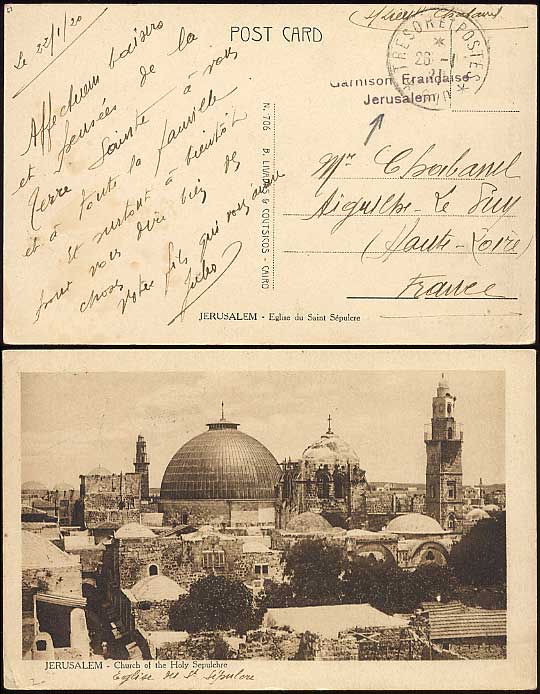 Le 22/1/20
POST CARD
Affectueux baisers
et pensées de la
Terre Sainte à vous
et à toute la famille
Et surtout à bientôt
pour vous dire bien des
choses
Votre fils qui vous aime
Jules
N. 706 B. LIVADAS & COUTSICOS - CAIRO
TRESOR ET POSTES
Garnison Française
Jerusalem
Mr Chabanel
Aiguilhe - Le Puy
(Haute-Loire)
France
JERUSALEM - Eglise du Saint Sépulcre
JERUSALEM - Church of the Holy Sepulchre
Eglise du St Sépulcre